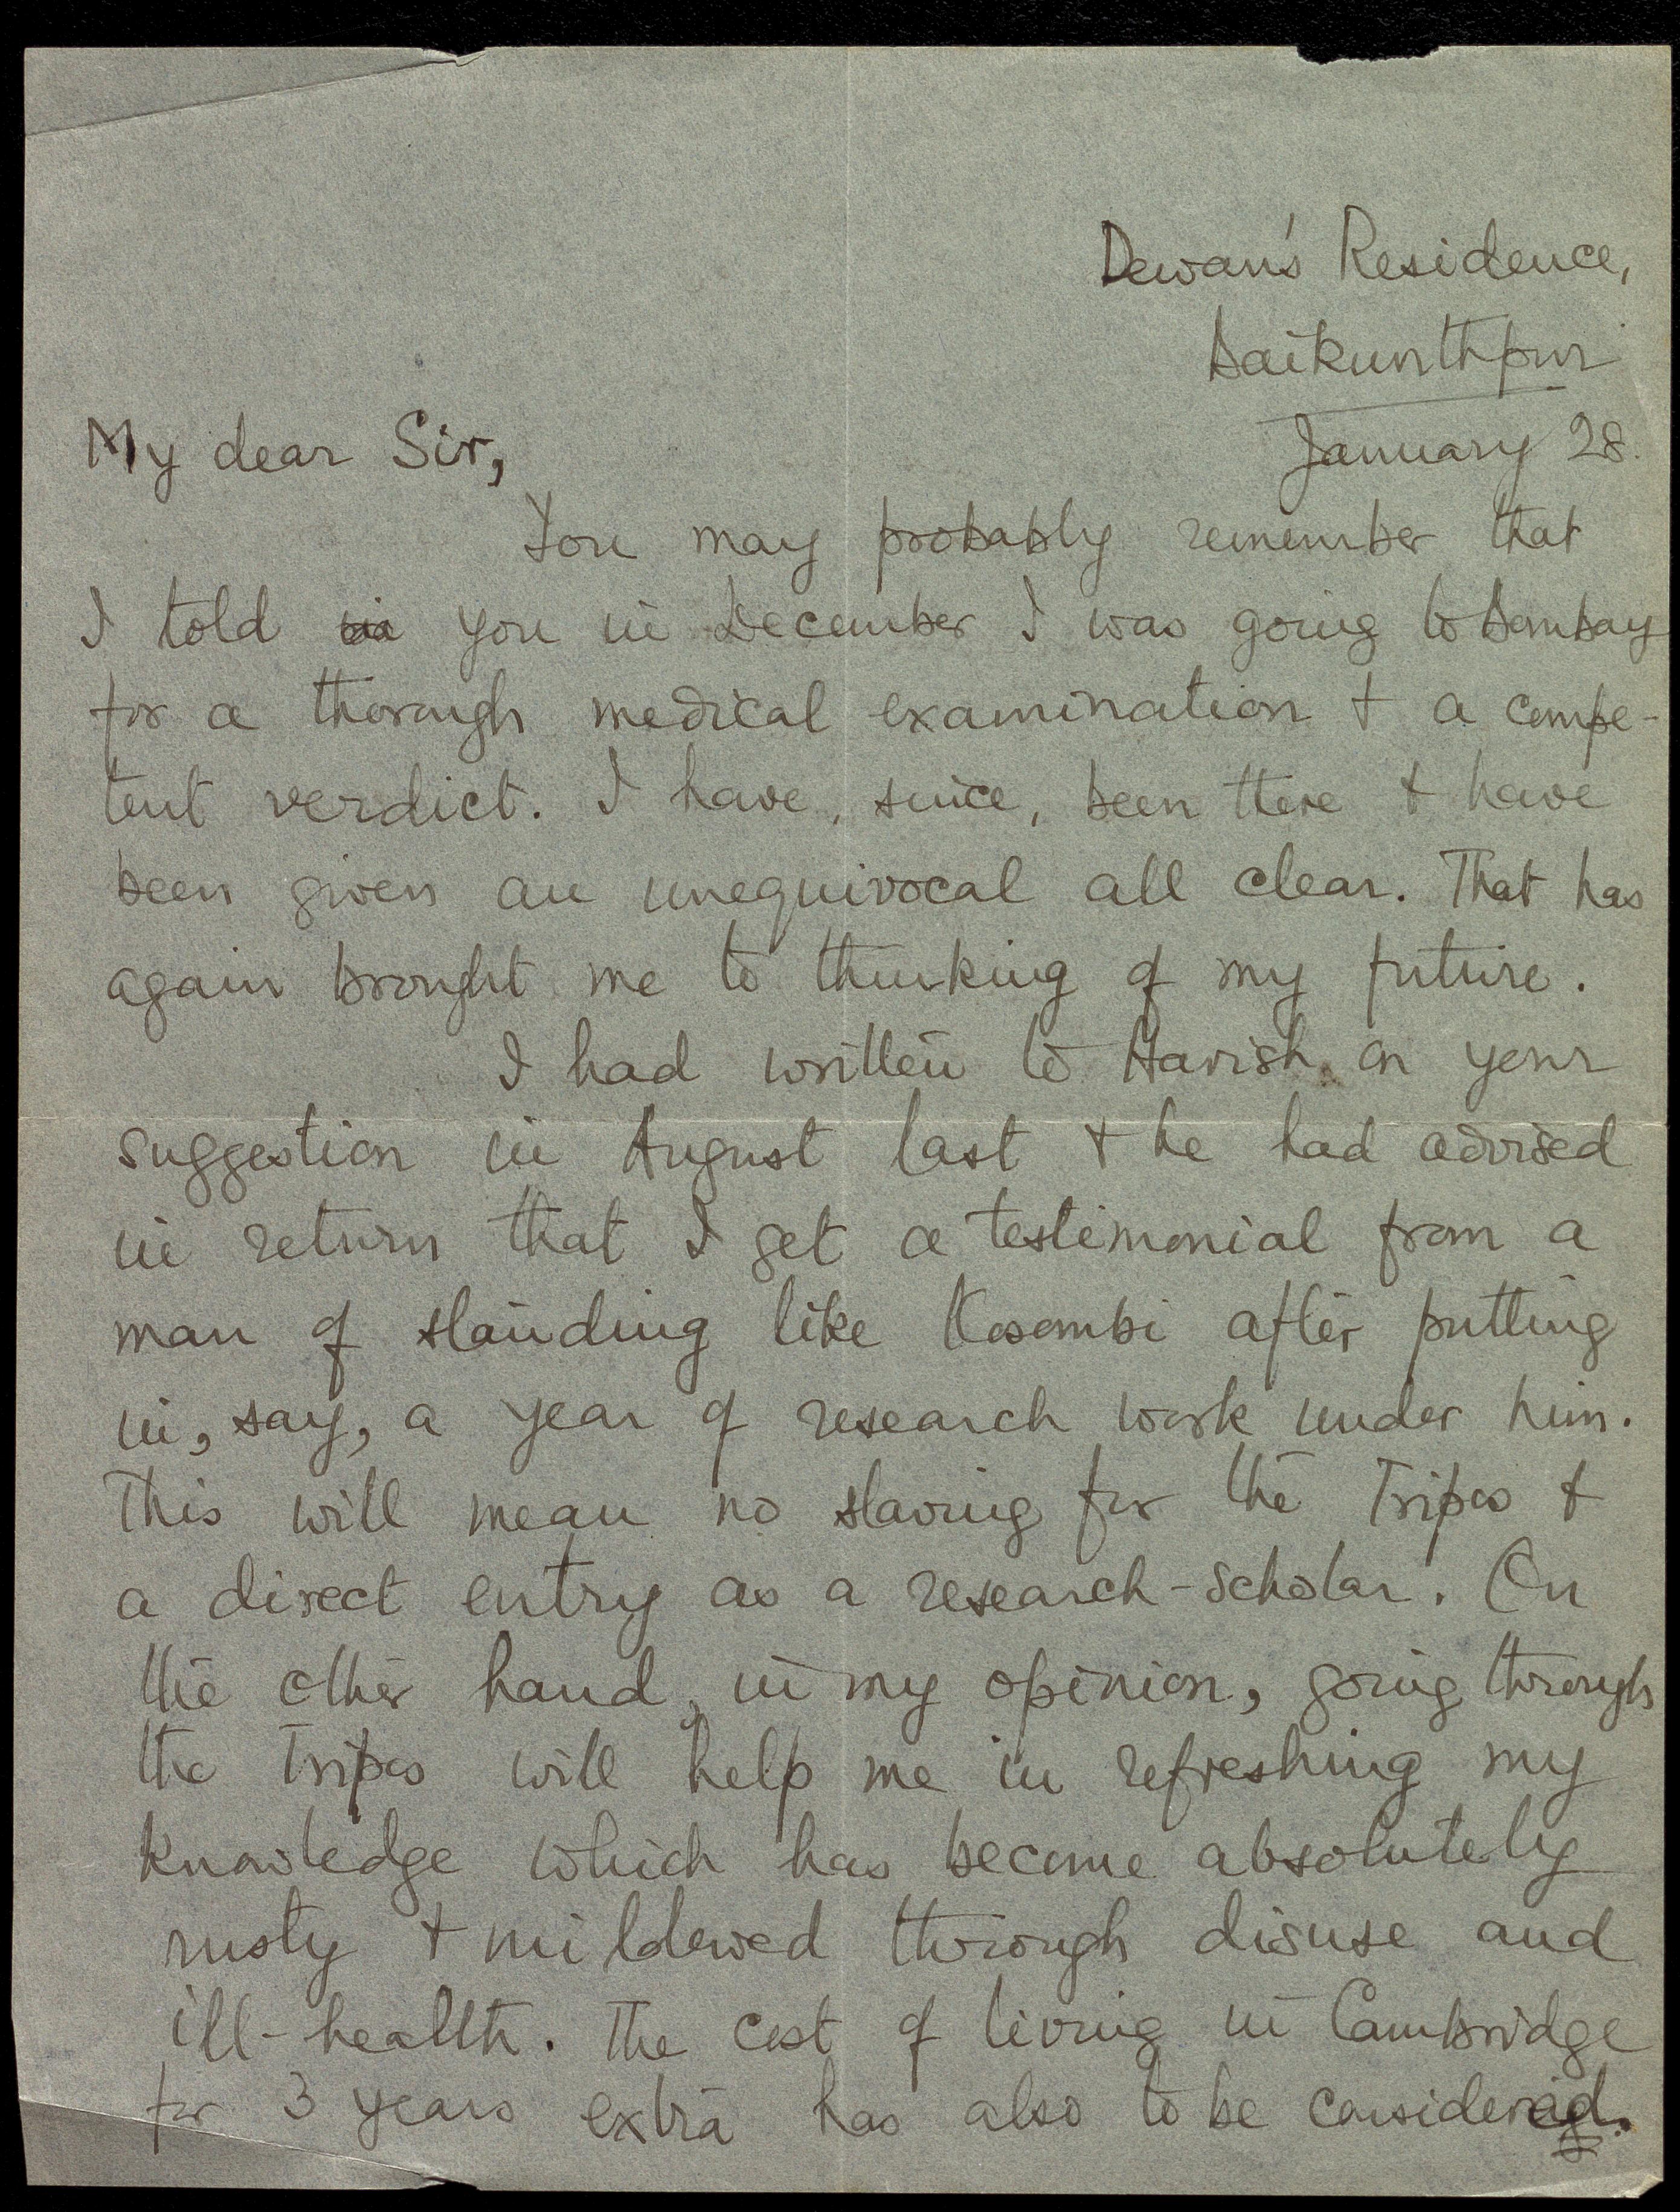 Dewan's Residence,
Baikunthpur
January 28.
My dear Sir,
You may probably remember that
I told you in December I was going to Bombay
for a thorough medical examination + a compe-
tent verdict. I have, since, been there + have
been given an unequivocal all clear. That has
again brought me to thinking of my future.
I had written to Harish on your
suggestion in August last + he had advised
in return that I get a testimonial from a
man of standing like Kosambi after putting
in, say, a year of research work under him.
This will mean no slaving for the Tripos +
a direct entry as a research-scholar. On
the other hand, in my opinion, going through
the Tripos will help me in refreshing my
knowledge which has become absolutely
rusty + mildewed through disuse and
ill-health. The cost of living in Cambridge
for 3 years extra has also to be considered.